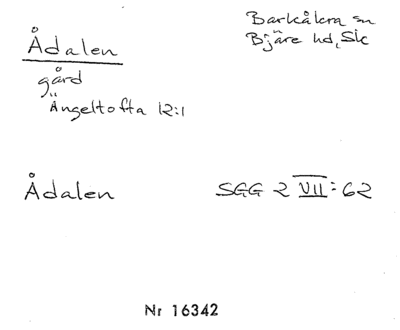 Ådalen
gård
Ängeltofta 12:1
Barkåkra sn
Bjäre hd, Sk
Ådalen
SGG 2 VII:62
Nr 16342